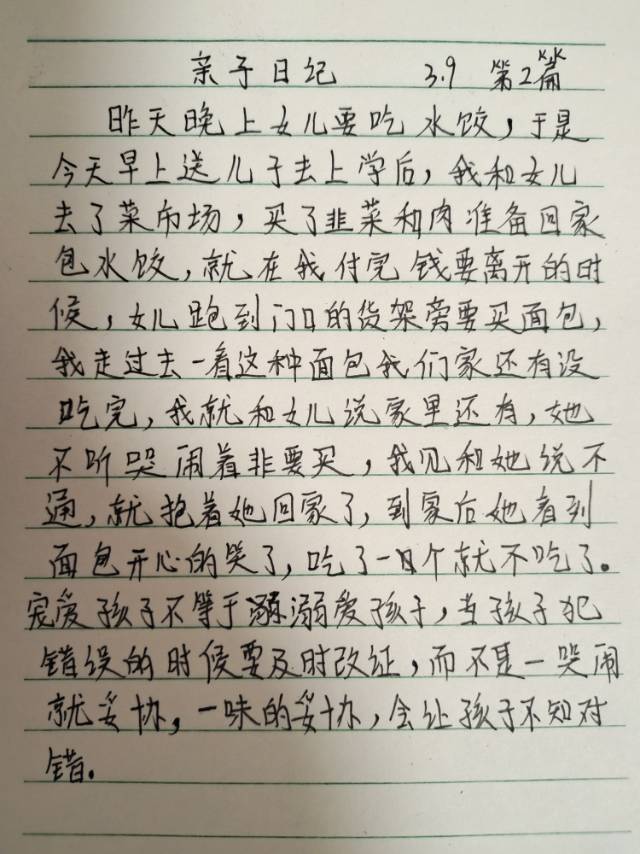 亲子日记 3.9 第2篇
昨天晚上女儿要吃水饺，于是
今天早上送儿子去上学后，我和女儿
去了菜市场，买了韭菜和肉准备回家
包水饺，就在我付完钱要离开的时
候，女儿跑到门口的货架旁要买面包，
我走过去一看这种面包我们家还有没
吃完，我就和女儿说家里还有，她
不听哭闹着非要买，我见和她说不
通，就抱着她回家了，到家后她看到
面包开心的笑了，吃了一个就不吃了。
宠爱孩子不等于溺爱孩子，当孩子犯
错误的时候要及时改证，而不是一哭闹
就妥协，一味的妥协，会让孩子不知对
错。